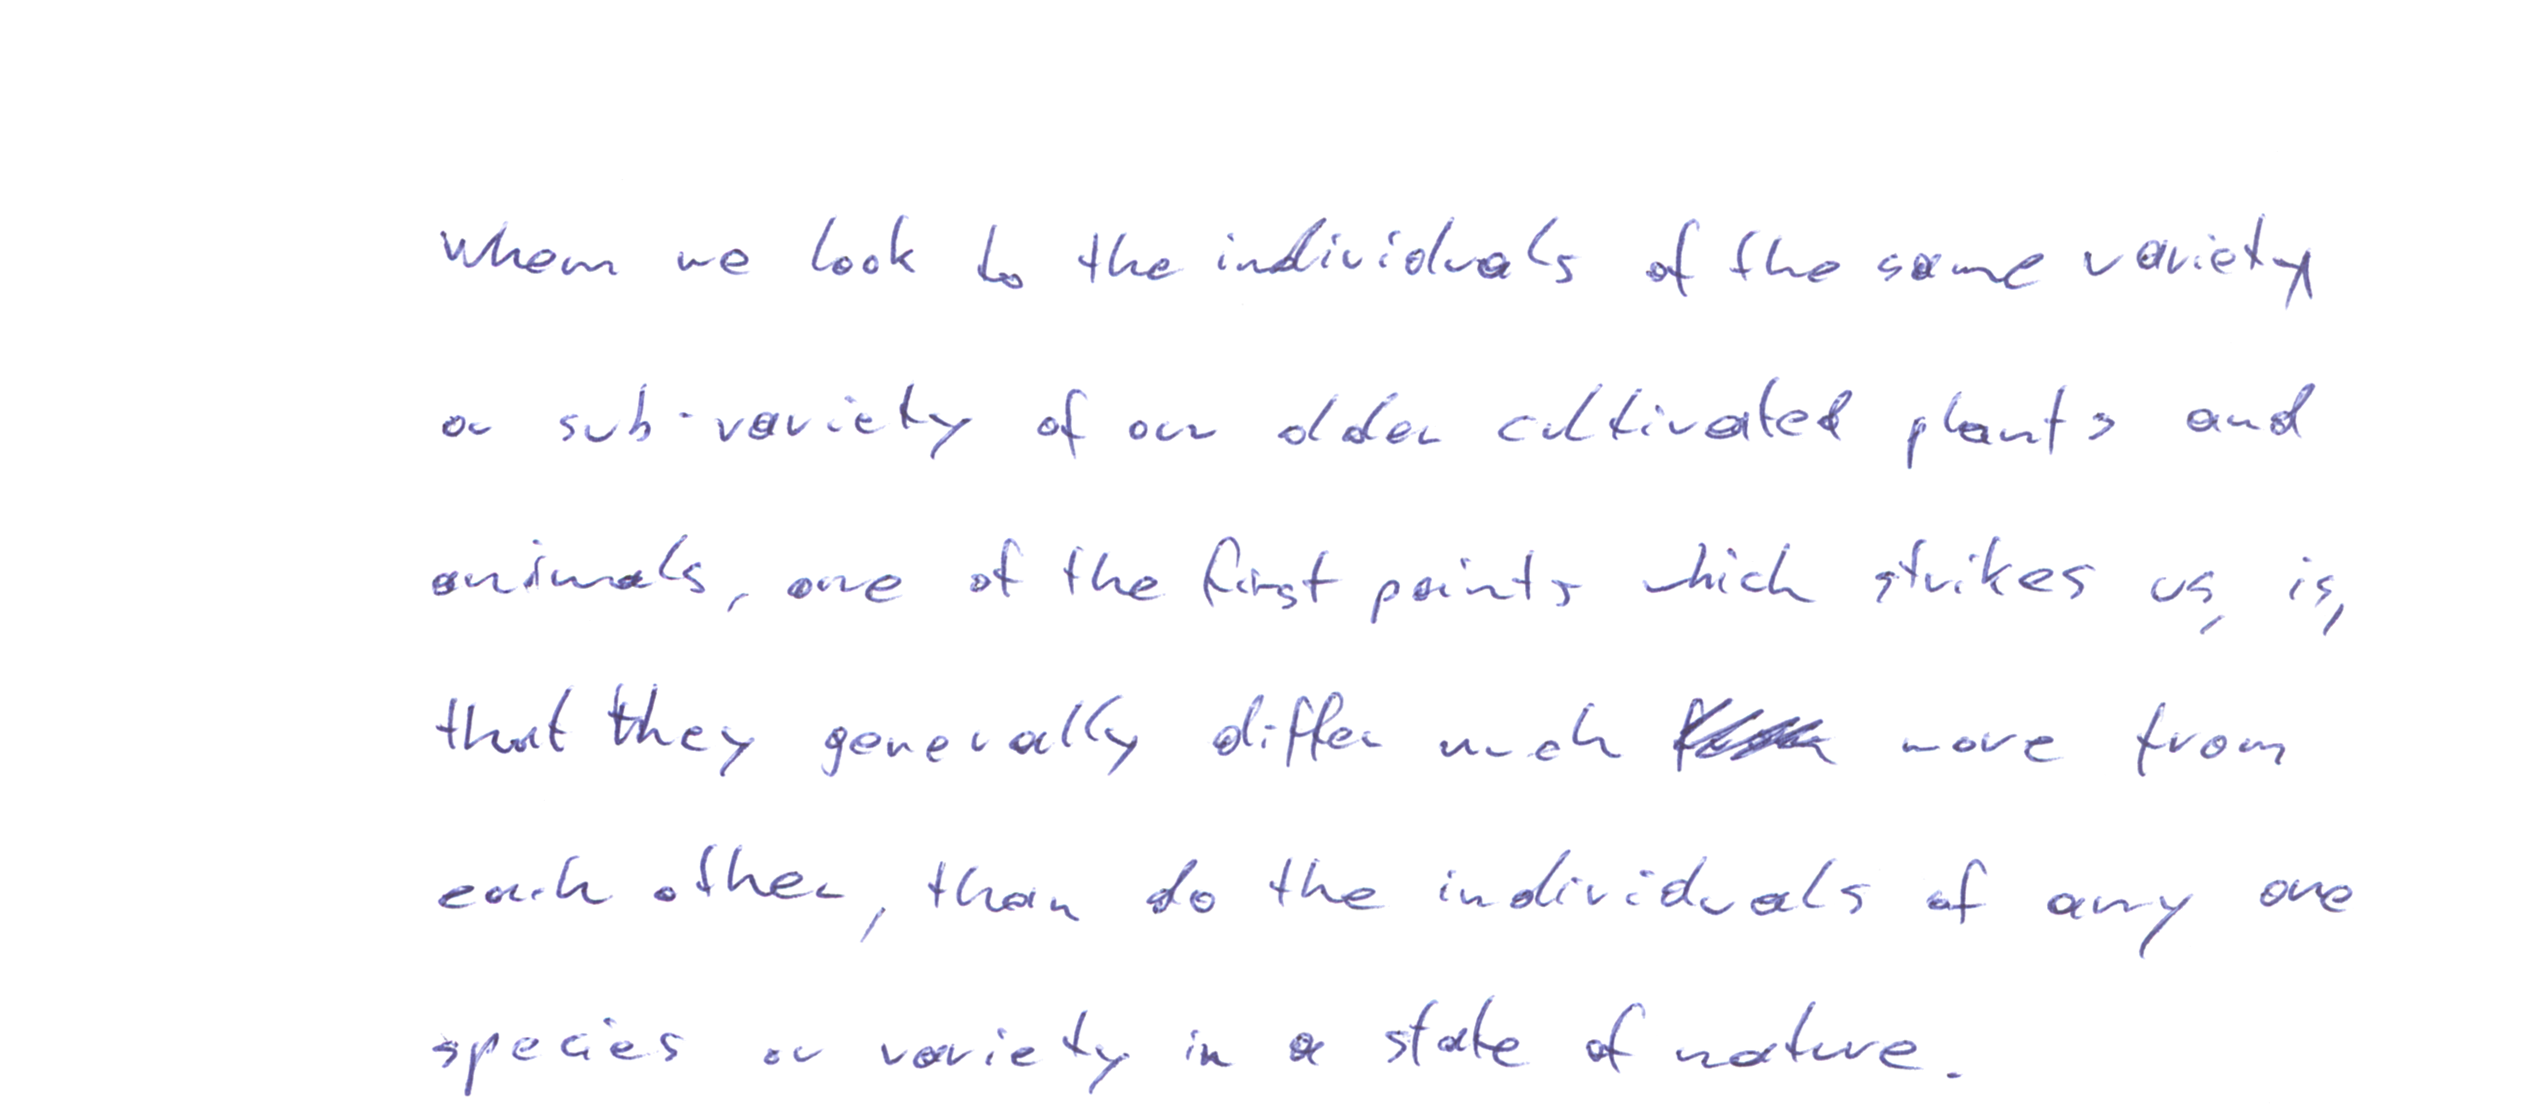 Whem we look to the individuals of the same variety
or sub-variety of our older cultivated plants and
animals, one of the first points which strikes us, is,
that they generally differ much more from
each other, than do the individuals of any one
species or variety in a state of nature.